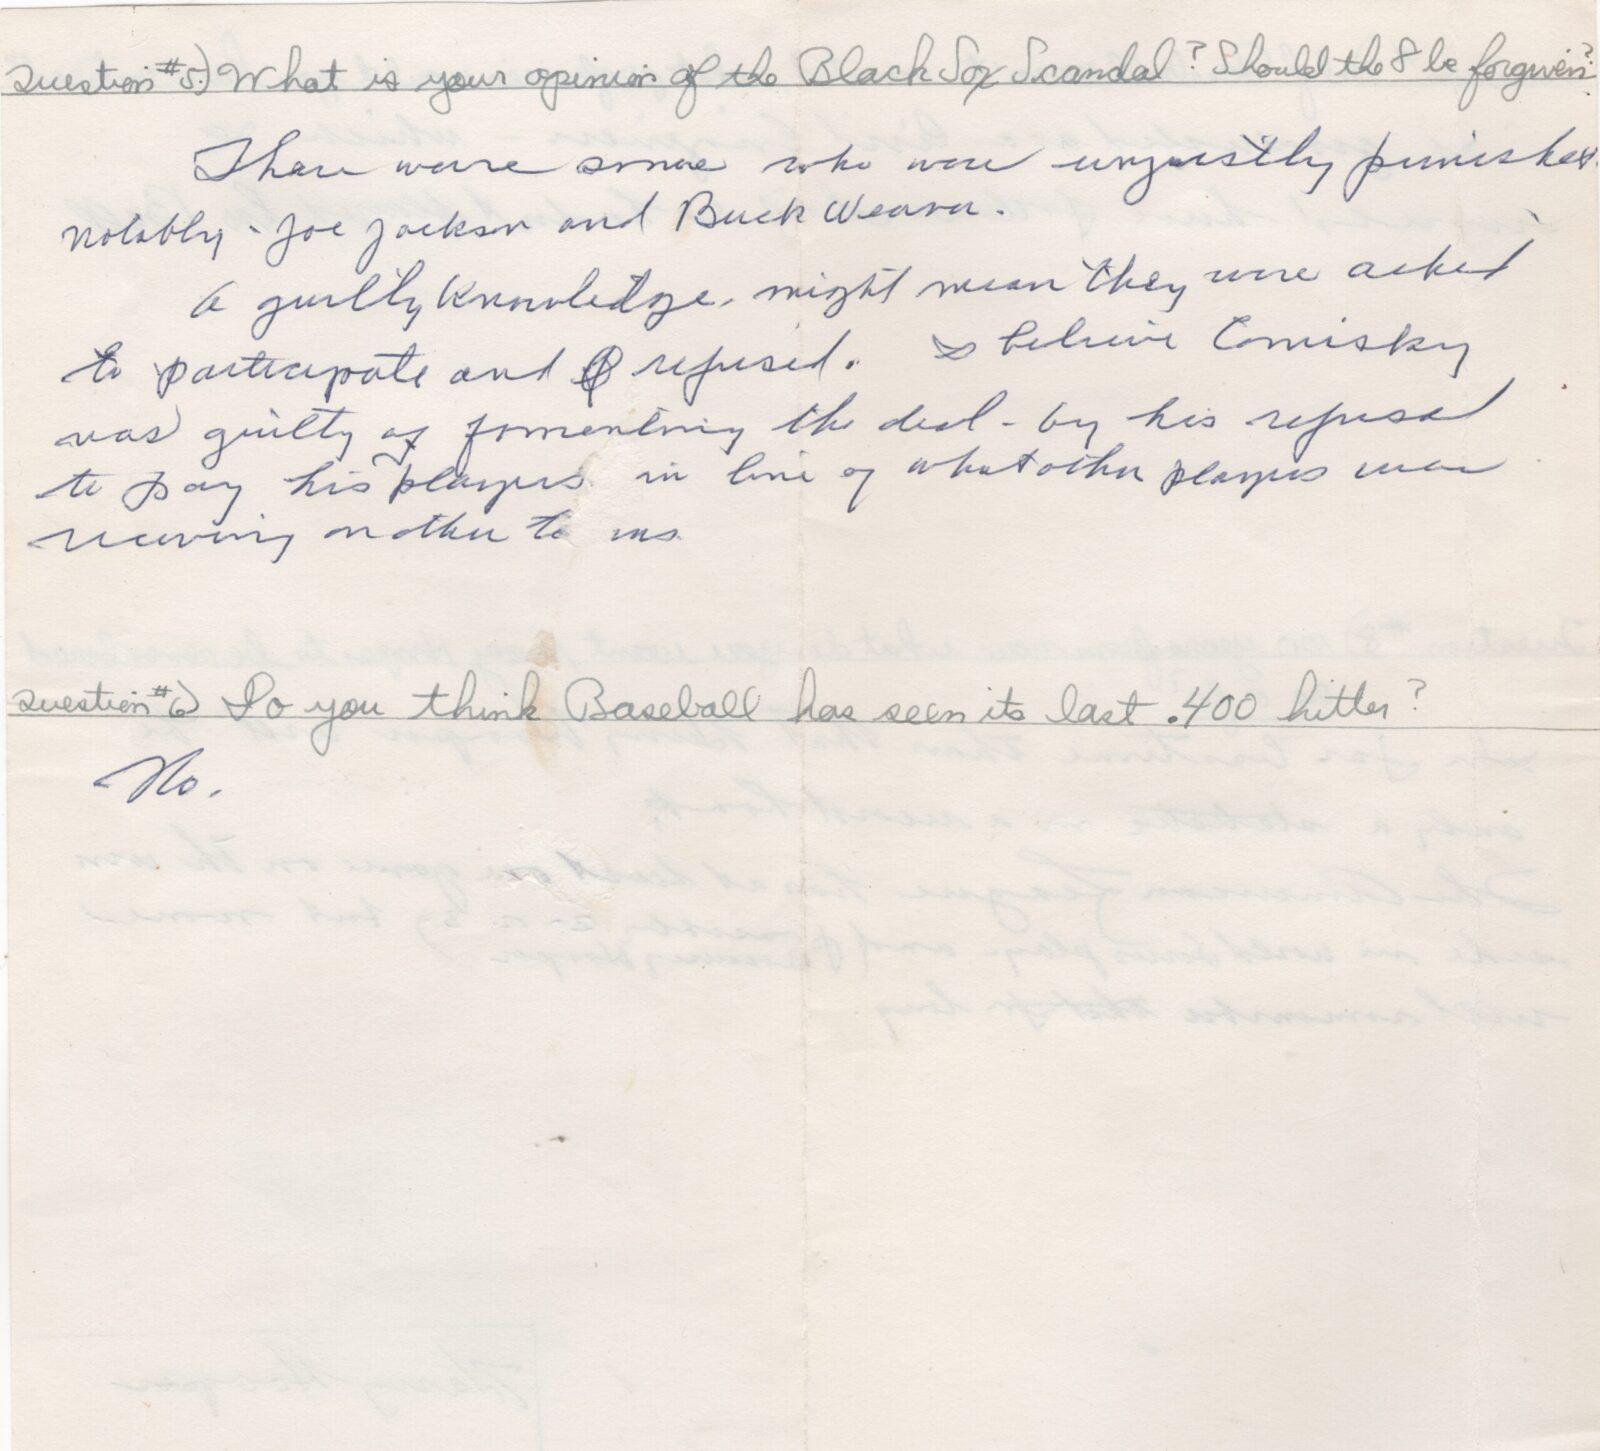 Question #5.) What is your opinion of the Black Sox Scandal? Should the 8 be forgiven?
There were some who were unjustly punished
notably - Joe Jackson and Buck Weaver.
A guilty knowledge, might mean they were asked
to participate and refused. I believe Comisky
was guilty of fomenting the deal - by his refusal
to pay his players in line of what other players were
receiving
Question #6) Do you think Baseball has seen its last .400 hitter?
No.